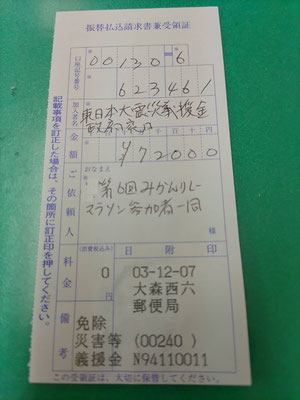 振替払込請求書兼受領証
口座記号番号
00130-6
623461
加入者名
東日本大震災義援金
政府窓口
金額
千百十万千百十円
¥72000
ご依頼人
おなまえ
第6回みかんリレー
マラソン参加者一同
様
料金
(消費税込み)
0
円
日附印
03-12-07
大森西六
郵便局
備考
免除
災害等 (00240)
義援金 N94110011
記載事項を訂正した場合は、その箇所に訂正印を押してください。
この受領証は、大切に保管してください。